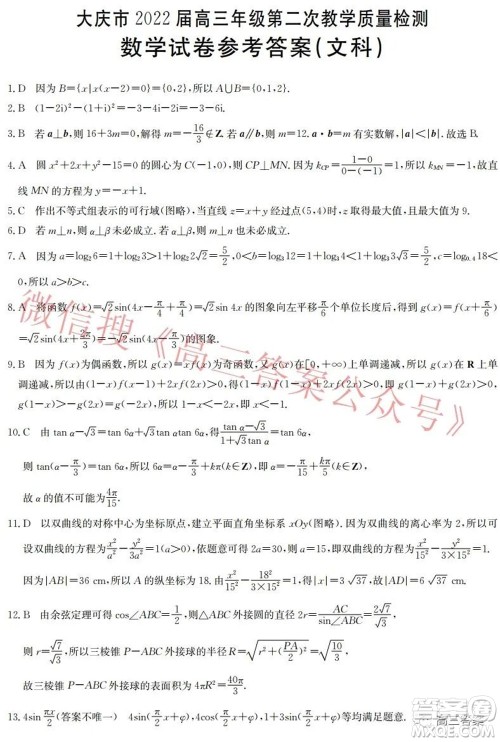 大庆市2022届高三年级第二次教学质量检测
数学试卷参考答案(文科)
1.D 因为B={x|x(x-2)=0}={0,2},所以A∪B={0,2}.
2.B (1-2i)²-(1+i)²=-3-4i-2i=-3-6i.
3.B 若a⊥b,则16+3m=0,解得m=-16/3∉Z.若a∥b,则m=12.a·b=m有实数解,|a|<|b|.故选B.
4.A 圆x²+2x+y²-15=0的圆心为C(-1,0),则CP⊥MN.因为k_CP=(1-0)/(0-(-1))=1,所以k_MN=-1,故直
线MN的方程为y=-x+1.
5.C 作出不等式组表示的可行域(图略),当直线z=x+y经过点(5,4)时,z取得最大值,且最大值为9.
6.D 若m⊥n,则α⊥β未必成立.若α⊥β,则m⊥n也未必成立.
7.A 因为a=log₂6=1+log₂3>1+log₂2√2=5/2,0<b=log₃12=1+log₃4<1+log₃3√3=5/2,c=log₀.₄18<0
,所以a>b>c.
8.A 将函数f(x)=√2sin(4x-π/4+π/4)=√2sin 4x的图象向左平移π/6个单位长度后,得到g(x)=f(x+π/6)
=√2sin(4x+2π/3)=-√2sin(4x-π/3)的图象.
9.B 因为f(x)为偶函数,所以g(x)=xf(x)为奇函数,又g(x)在[0,+∞)上单调递减,所以g(x)在R上单
调递减,所以由(1-x)f(x-1)+2xf(2x)>0,得(1-x)f(1-x)>-2xf(2x),即g(1-x)>
-g(2x)=g(-2x),所以1-x<-2x,即x<-1.
10.C 由tan α-√3=tan 6α+√3tan αtan 6α,得(tan α-√3)/(1+√3tan α)=tan 6α,
则tan(α-π/3)=tan 6α,所以6α=α-π/3+kπ(k∈Z),即α=-π/15+kπ/5(k∈Z),
故α的值不可能为4π/15.
11.D 以双曲线的对称中心为坐标原点,建立平面直角坐标系xOy(图略).因为双曲线的离心率为2,所以可
设双曲线的方程为x²/a²-y²/3a²=1(a>0),依题意可得2a=30,则a=15,即双曲线的方程为x²/15²-y²/(3×15²)=1.
因为|AB|=36 cm,所以A的纵坐标为18.由x²/15²-18²/(3×15²)=1,得|x|=3√37,故|AD|=6√37 cm.
12.B 由余弦定理可得cos∠ABC=1/2,则△ABC外接圆的直径2r=AC/sin∠ABC=2√7/√3,
则r=√7/√3,所以三棱锥P-ABC外接球的半径R=√(r²+(PA/2)²)=√(10/3),
故三棱锥P-ABC外接球的表面积为4πR²=40π/3.
13.4sin πx/2(答案不唯一) 4sin(π/2x+φ),4cos(π/2x+φ),|4sin(π/4x+φ)|等均满足题意.
微信搜《高三答案公众号》
高三答案